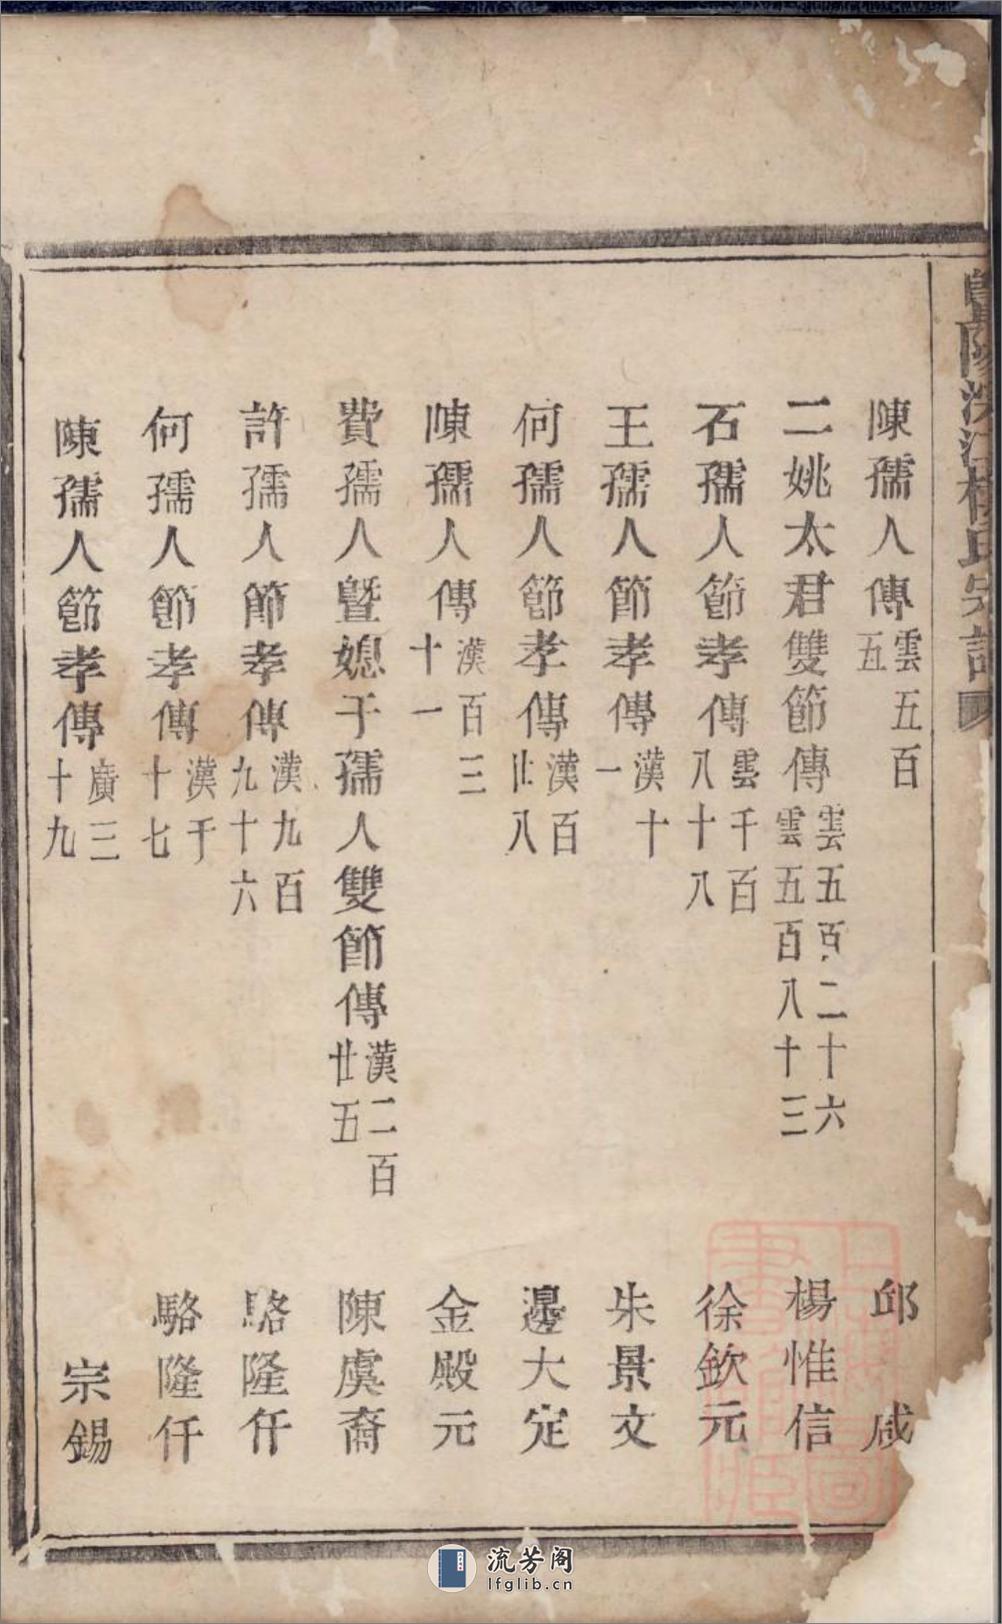 暨陽漢江楊氏宗譜
陳孺人傳 雲五百五 邱 咸
二姚太君雙節傳 雲五百二十六 雲五百八十三 楊惟信
石孺人節孝傳 雲千百八十八 徐欽元
王孺人節孝傳 漢十一 朱景文
何孺人節孝傳 漢百廿八 邊大定
陳孺人傳 漢百三十一 金殿元
費孺人暨媳于孺人雙節傳 漢二百廿五 陳虞裔
許孺人節孝傳 漢九百九十六 駱隆仟
何孺人節孝傳 漢于十七 駱隆仟
陳孺人節孝傳 廣三十九 宗錫
流芳阁
lfglib.cn